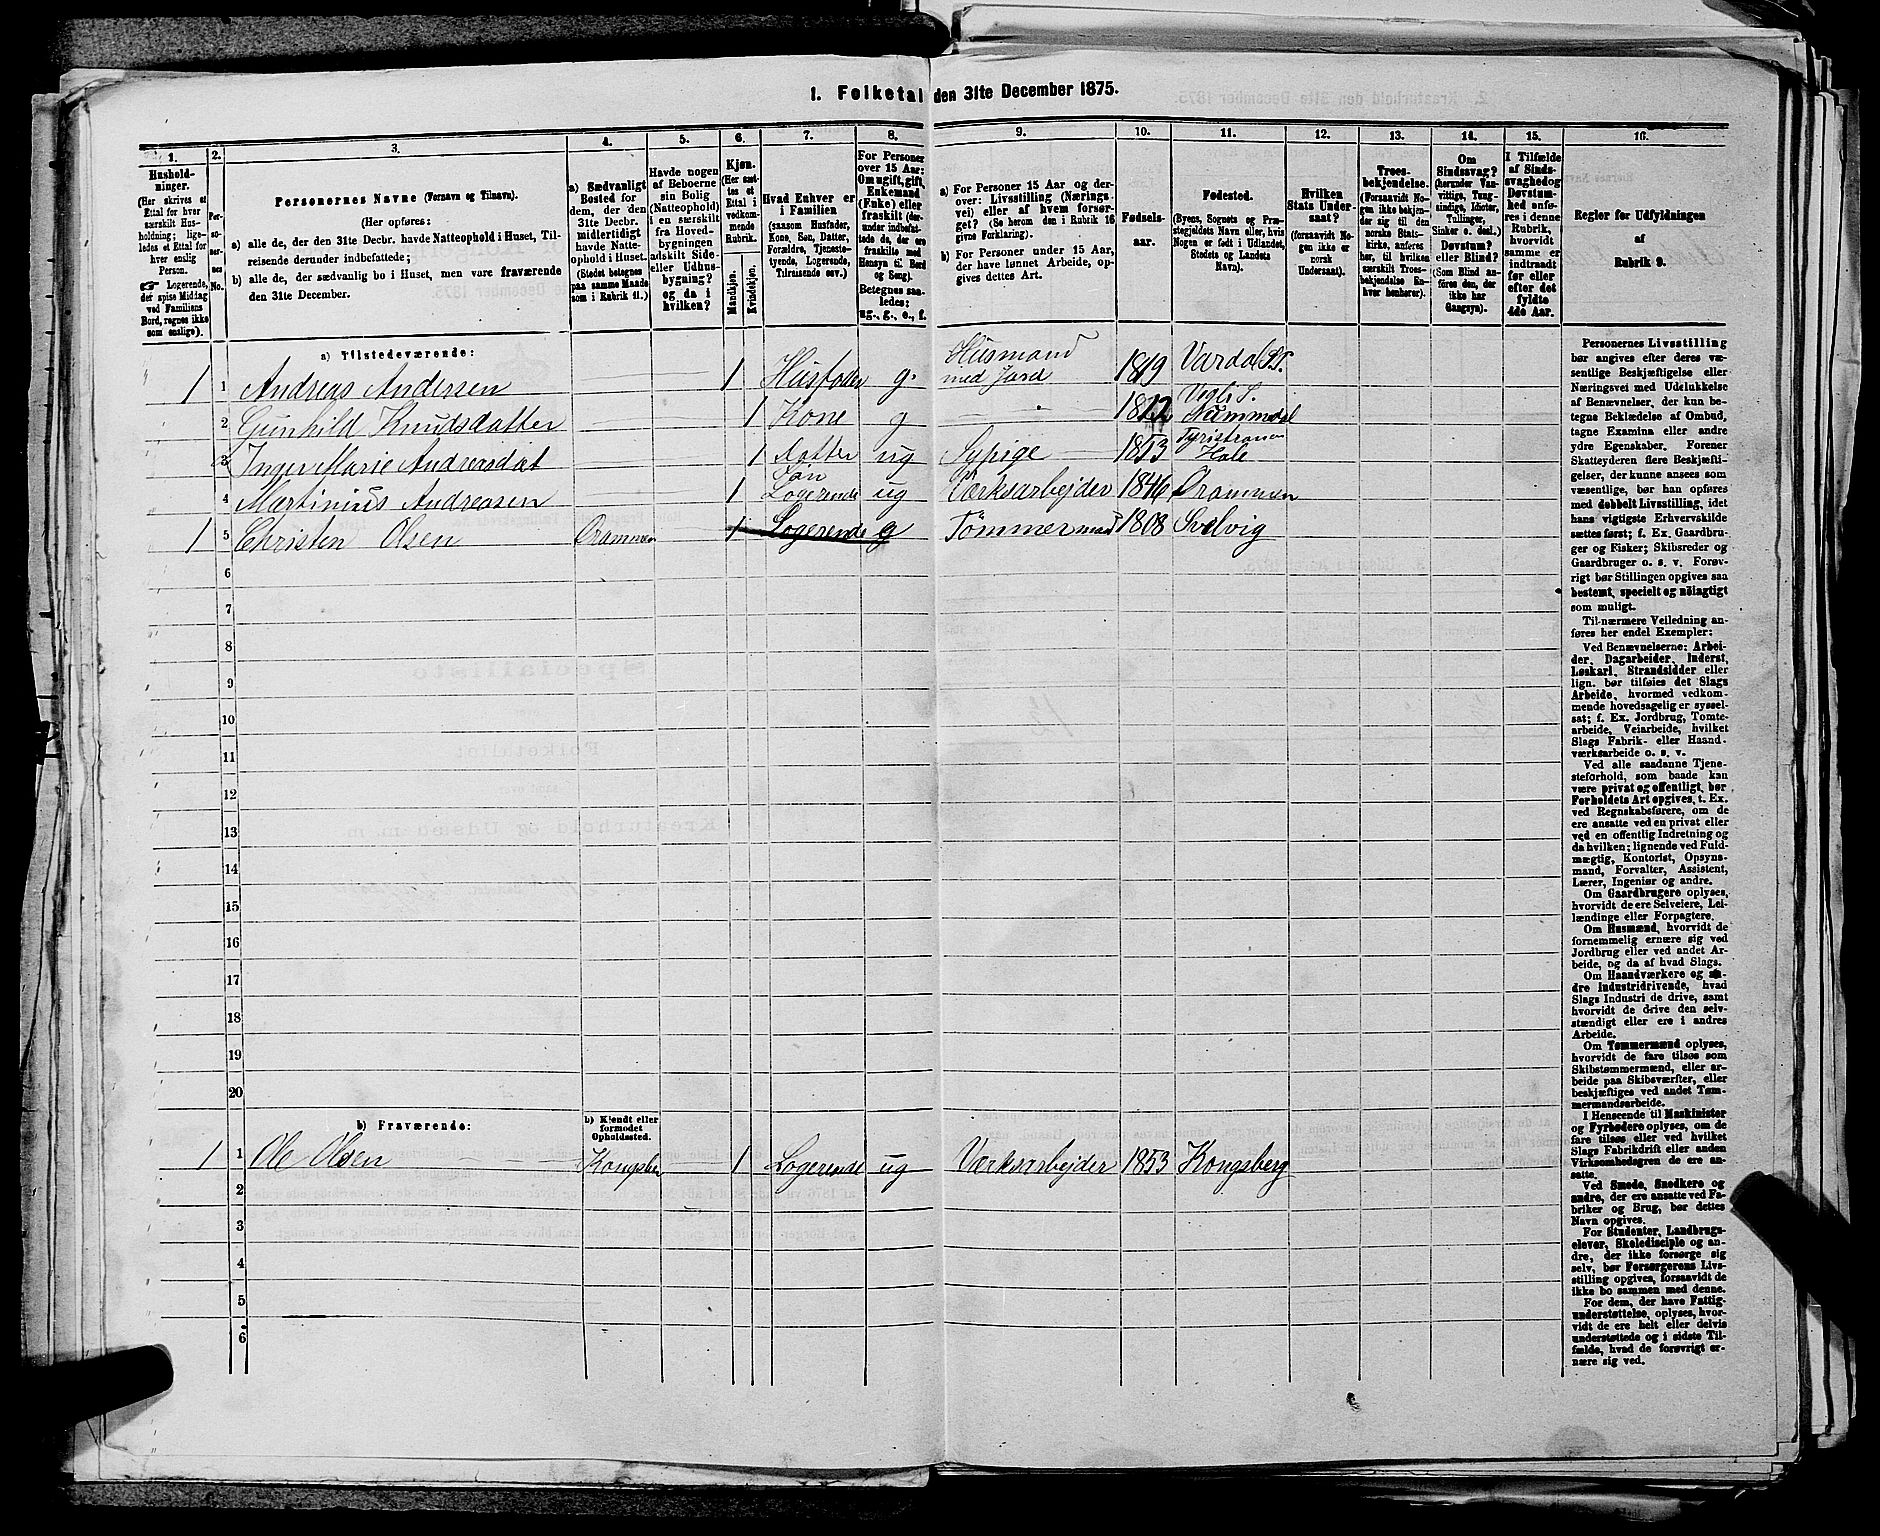 1. Folketal den 31te December 1875.
1.
2.
3.
4.
5.
6.
7.
8.
9.
10.
11.
12.
13.
14.
15.
16.
Hushold-
ninger.
(Her skrives et
Ettal for hver
særskilt Hus-
holdning; lige-
ledes et Ettal for
hver enslig
Person.
Logerende,
der spise Middag
ved Familiens
Bord, regnes ikke
som enslige).
Per-
so-
ner-
nes
No.
Personernes Navne (Fornavn og Tilnavn).
(Her opføres:
a) alle de, der den 31te Decbr. havde Natteophold i Huset, Til-
reisende derunder indbefattede;
b) alle de, der sædvanlig bo i Huset, men vare fraværende
den 31te December.
a) Sædvanligt
Bosted for
dem, der den
31te Decbr.
midlertidigt
havde Natte-
ophold i Huset.
(Stedet betegnes
paa samme Maade
som i Rubrik 11.)
Havde nogen
af Beboerne
sin Bolig
(Natteophold)
i en særskilt
fra Hoved-
bygningen
adskilt Side-
eller Udhus-
bygning?
og da i
hvilken?
Kjøn.
(Her sæt-
tes et
Ettal i
vedkom-
mende
Rubrik.
Mandkjøn.
Kvindekjøn.
Hvad Enhver er
i Familien
(saasom Husfader,
Kone, Søn, Datter,
Forældre, Tjeneste-
tyende, Logerende,
Tilreisende osv.)
For Personer
over 15 Aar:
Om ugift, gift,
Enkemand
(Enke) eller
fraskilt (der-
under indbefat-
tede de, der ere
fraskilte med
Hensyn til Bord
og Seng).
Betegnes saa-
ledes:
ug., g., e., f.
a) For Personer 15 Aar og der-
over: Livsstilling (Nærings-
vei) eller af hvem forsør-
get? (Se herom den i Rubrik 16
givne Forklaring).
b) For Personer under 15 Aar,
der have lønnet Arbeide, op-
gives dettes Art.
Fødsels-
aar.
Fødested.
(Byens, Sognets og Præ-
stegjeldets Navn eller, hvis
Nogen er født i Udlandet,
Stedets og Landets
Navn).
Hvilken
Stats Under-
saat?
(forsaavidt No-
gen ikke er
norsk
Undersaat).
Troes-
bekjendelse.
(Forsaavidt No-
gen ikke bekjen-
der sig til den
norske Stats-
kirke, anføres
her, til hvilken
særskilt Troes-
bekjendelse En-
hver henhører).
Om
Sindssvag?
(herunder Van-
vittige, Tung-
sindige, Idioter,
Tullinger,
Sinker o. desl.)
Døvstum?
eller Blind?
(Som Blind an-
føres den, der
ikke har
Gangsyn).
I Tilfælde
af Sinds-
svaghed og
Døvstum-
hed anfø-
res i denne
Rubrik,
hvorvidt
samme er
indtraadt
før eller
efter det
fyldte
4de Aar.
Regler for Udfyldningen
af
Rubrik 9.
a) Tilstedeværende:
1 1 Andreas Andersen 1 Husfader g. Husmand
med Jord 1819 Vardal Pr.
2 Gunhild Knudsdatter 1 Kone g Vegli S.
Nummedal
3 Inger Marie Andreasdat 1 Datter ug Sypige 1853 Tyristranen
Hole
4 Martinius Andreasen 1 Søn
Logerende ug Værksarbejder 1846 Drammen
1 5 Christen Olsen Drammen 1 Logerende g Tømmermand 1808 Svelvig
6
7
8
9
10
11
12
13
14
15
16
17
18
19
20
b) Fraværende:
b) Kjendt eller
formodet
Opholdssted.
1 1 Ole Olsen Kongsber 1 Logerende ug Værksarbejder 1853 Kongsberg
2
3
4
5
6
Personernes Livsstilling
bør angives efter deres væ-
sentlige Beskjæftigelse eller
Næringsvei med Udelukkelse
af Benævnelser, der kun be-
tegne Beklædelse af Ombud,
tagne Examina eller andre
ydre Egenskaber. Forener
Skatteyderen flere Beskjæfti-
gelser, der kunne ansees som
væsentlige, bør han opføres
med dobbelt Livsstilling, idet
hans vigtigste Erhvervskilde
sættes først; f. Ex. Gaardbru-
ger og Fisker; Skibsreder og
Gaardbruger o. s. v. Forøv-
rigt bør Stillingen opgives saa
bestemt, specielt og nøiagtigt
som muligt.
Til nærmere Veiledning an-
føres her endel Exempler:
Ved Benævnelserne: Arbei-
der, Dagarbeider, Inderst,
Løskarl, Strandsidder eller
lign. bør tilføies det Slags
Arbeide, hvormed vedkom-
mende hovedsagelig er syssel-
sat; f. Ex. Jordbrug, Tomte-
arbeide, Veiarbeide, hvilket
Slags Fabrik- eller Haand-
værksarbeide o. s. v.
Ved alle saadanne Tjene-
steforhold, som baade kan
være privat og offentligt, bør
Forholdets Art opgives, t. Ex.
ved Regnskabsførere, om de
ere ansatte ved en privat eller
ved en offentlig Indretning og
da hvilken; lignende ved Fuld-
mægtig, Kontorist, Opsyns-
mand, Forvalter, Assistent,
Lærer, Ingeniør og andre.
Om Gaardbrugere oplyses,
hvorvidt de ere Selveiere, Lei-
lændinge eller Forpagtere.
Om Husmænd, hvorvidt de
fornemmelig ernære sig ved
Jordbrug eller ved andet Ar-
beide, og da af hvad Slags.
Om Haandværkere og an-
dre Industridrivende, hvad
Slags Industri de drive, samt
hvorvidt de drive den selv-
stændigt eller ere i andres
Arbeide.
Om Tømmermænd oplyses,
hvorvidt de fare tilsøs som
Skibstømmermænd, eller ar-
beide paa Skibsværfter, eller
beskjæftiges ved andet Tøm-
mermandsarbeide.
I Henseende til Maskinister
og Fyrbødere oplyses, om de
fare tilsøs eller ved hvilket
Slags Fabrikdrift eller anden
Virksomhedsgren de ere an-
satte.
Ved Smede, Snedkere og
andre, der ere ansatte ved Fa-
briker og Brug, bør dettes
Navn opgives.
For Studenter, Landbrugs-
elever, Skoledisciple og an-
dre, der ikke forsørge sig
selv, bør Forsørgerens Livs-
stilling opgives, forsaavidt de
ikke bo sammen med denne.
For dem, der have Fattig-
understøttelse, oplyses, hvor-
vidt de ere helt eller delvis
understøttede og i sidste Til-
fælde, hvad de forøvrigt er-
nære sig ved.